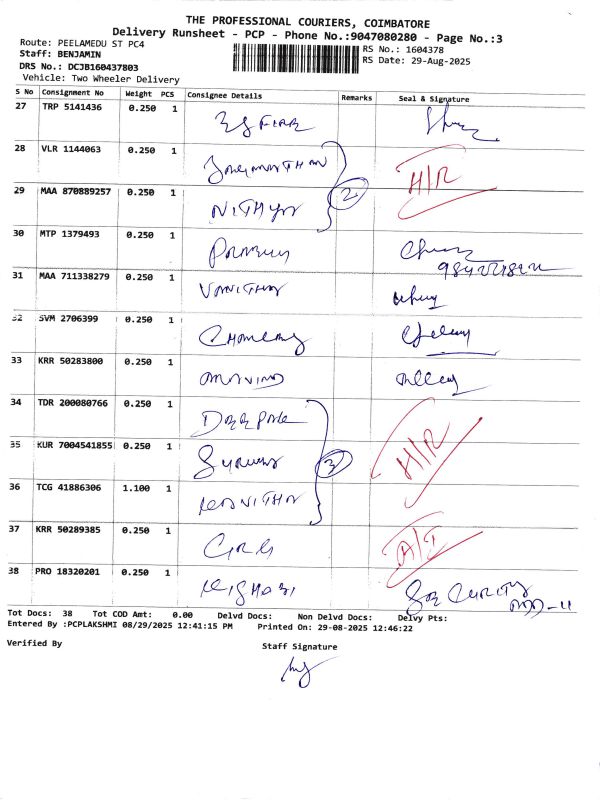 THE PROFESSIONAL COURIERS, COIMBATORE
Delivery Runsheet - PCP - Phone No.:9047080280 - Page No.:3
Route: PEELAMEDU ST PC4
Staff: BENJAMIN
DRS No.: DCJB160437803
Vehicle: Two Wheeler Delivery
RS No.: 1604378
RS Date: 29-Aug-2025
S No Consignment No Weight PCS Consignee Details Remarks Seal & Signature
27 TRP 5141436 0.250 1
28 VLR 1144063 0.250 1 H/R
29 MAA 870889257 0.250 1 NITHYA 2
30 MTP 1379493 0.250 1
31 MAA 711338279 0.250 1 VANITHA
32 SVM 2706399 0.250 1
33 KRR 50283800 0.250 1
34 TDR 200080766 0.250 1
35 KUR 7004541855 0.250 1 3 H/R
36 TCG 41886306 1.100 1 KAVITHA
37 KRR 50289385 0.250 1
38 PRO 18320201 0.250 1 SECURITY
Tot Docs: 38 Tot COD Amt: 0.00 Delvd Docs: Non Delvd Docs: Delvy Pts:
Entered By :PCPLAKSHMI 08/29/2025 12:41:15 PM Printed On: 29-08-2025 12:46:22
Verified By
Staff Signature